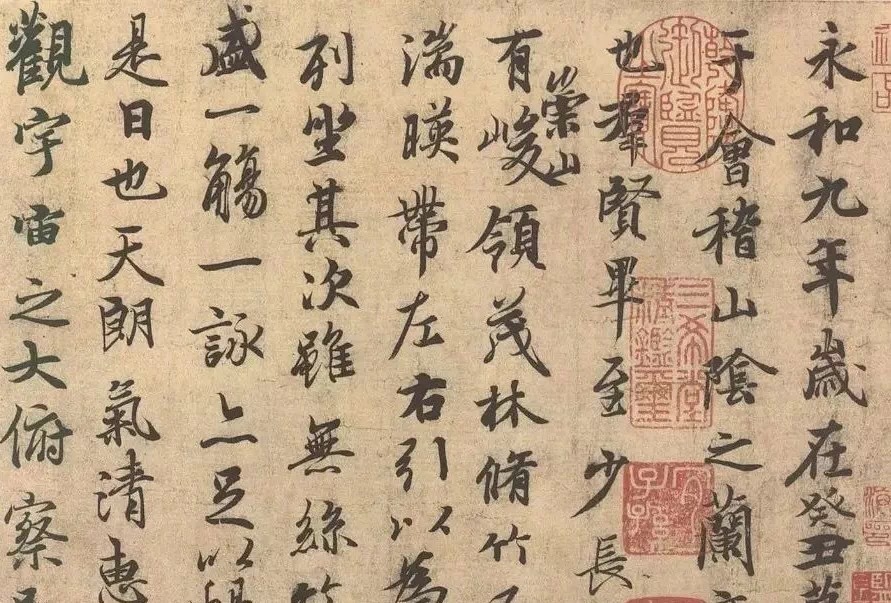 永和九年歲在癸丑
于會稽山陰之蘭
也羣賢畢至少長
有崇山峻領茂林脩竹
湍暎帶左右引以為
列坐其次雖無絲竹
盛一觴一詠亦足以暢
是日也天朗氣清惠
觀宇宙之大俯察